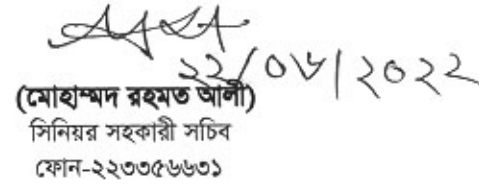 ২২/০৬/২০২২
(মোহাম্মদ রহমত আলী)
সিনিয়র সহকারী সচিব
ফোন-২২৩৩৫৬৬৩১